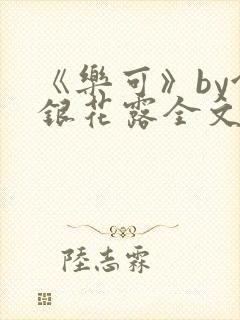 《樂可》by
銀花露全文
陸志霖